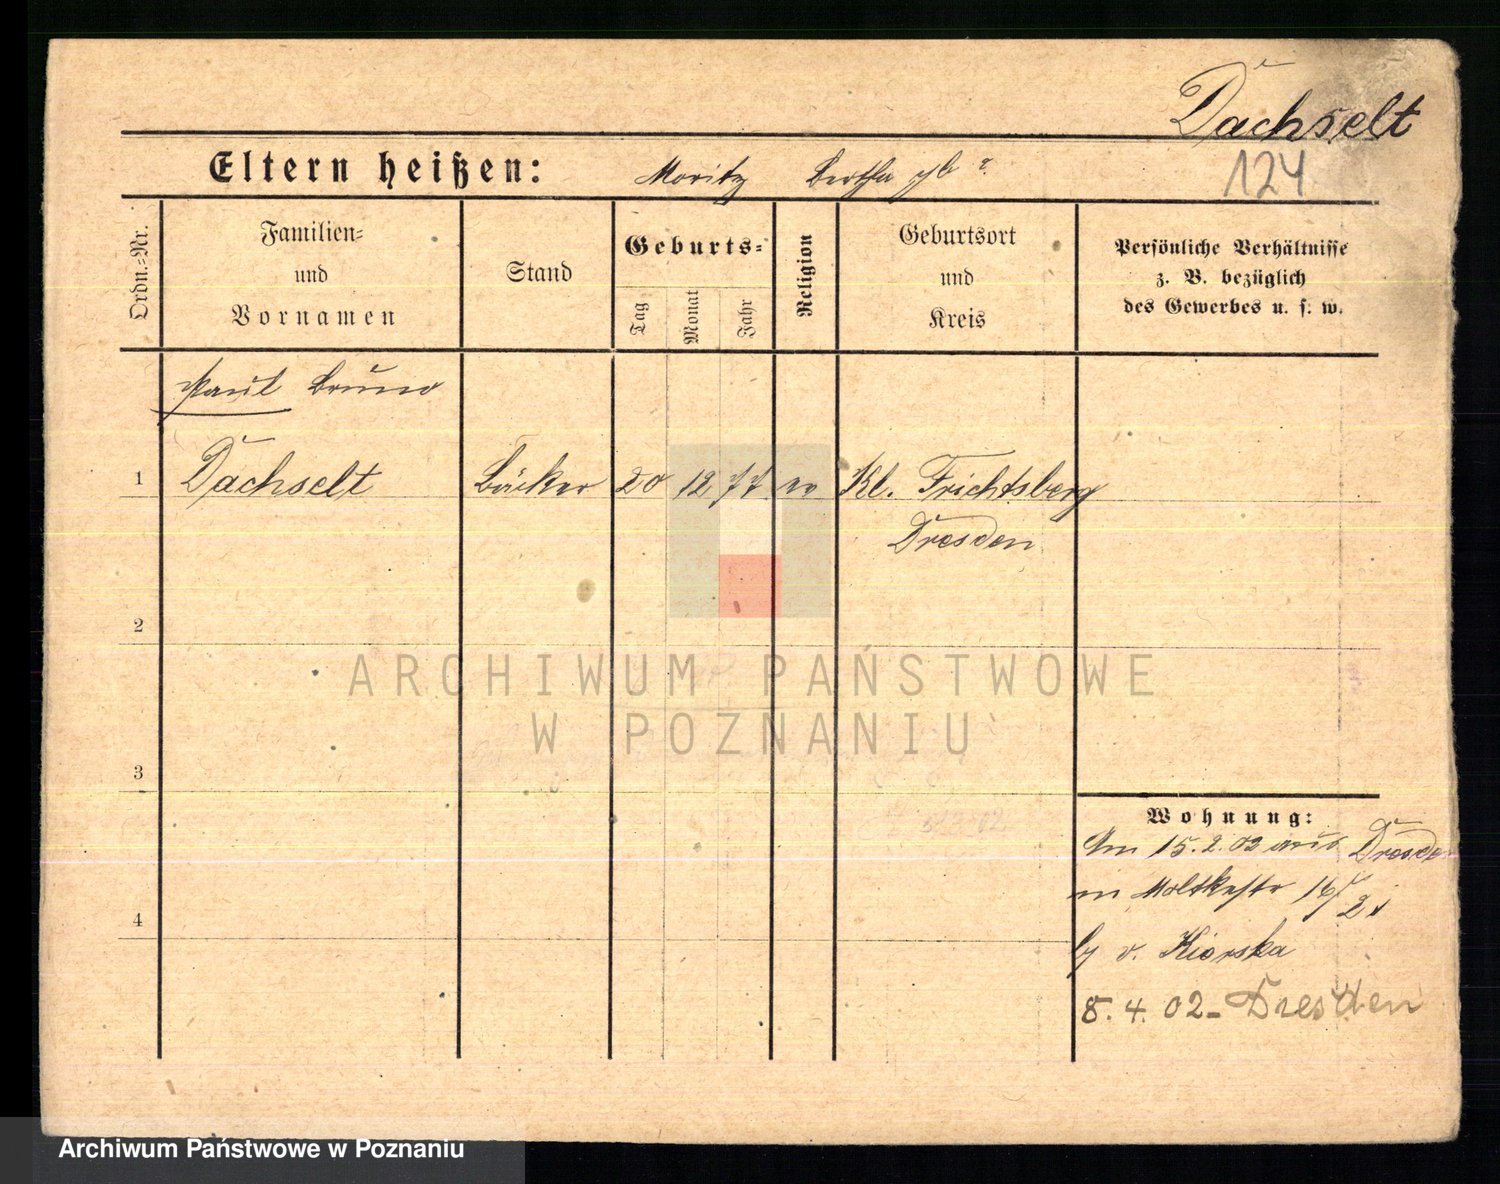 Dachselt
124
Eltern heißen: Moritz Bertha geb ?
Ordn.-Nr.
Familien-
und
Vornamen
Stand
Geburts-
Tag
Monat
Jahr
Religion
Geburtsort
und
Kreis
Persönliche Verhältnisse
z. B. bezüglich
des Gewerbes u. s. w.
Paul Bruno
1 Dachselt Bäcker 20 12 77 ev Kl. Frichtsberg
Dresden
2
ARCHIWUM PAŃSTWOWE
W POZNANIU
3
Wohnung:
Am 15.2.02 aus Dresde
in Moltkestr 16/2
4
b/ v. Kiorska
8.4.02 - Dresden
Archiwum Państwowe w Poznaniu